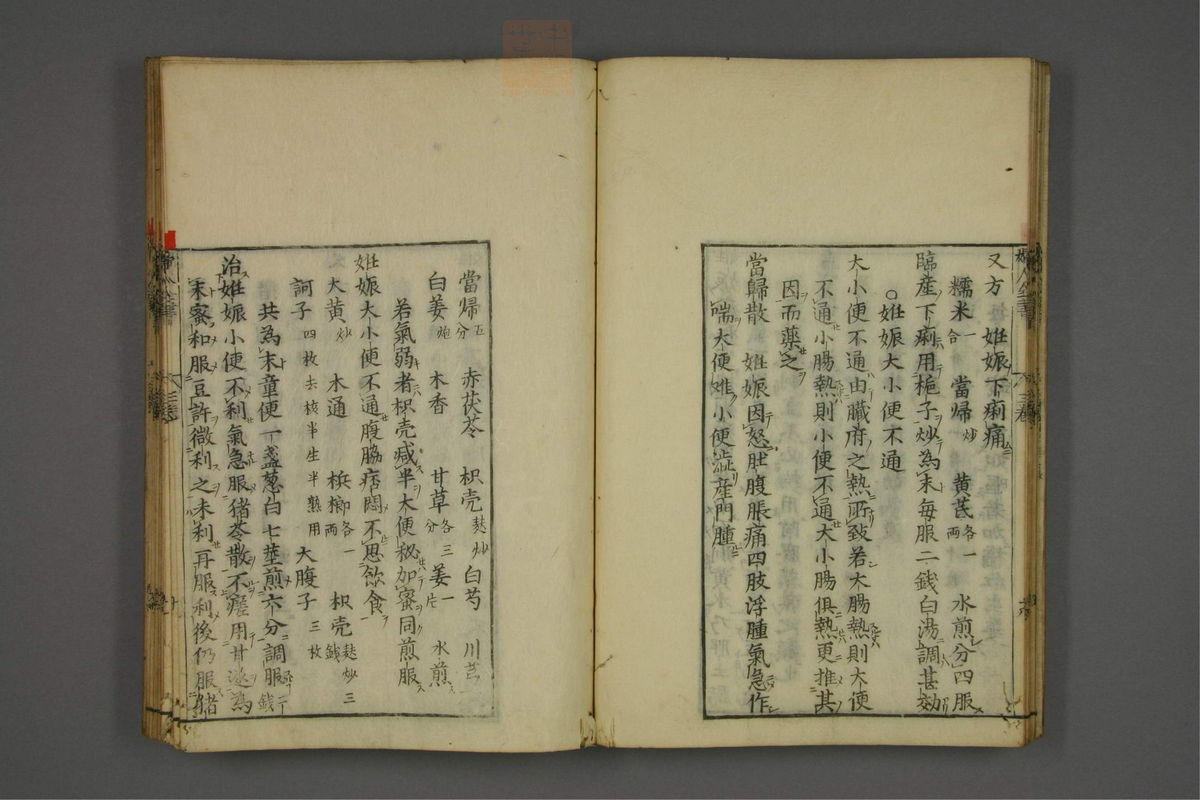 又方 妊娠下痢痛
糯米一合 當歸炒 黄芪各一兩 水煎分四服
臨産下痢用梔子炒為末每服二錢白湯調甚効
○妊娠大小便不通
大小便不通由臓府之熱所致若大腸熱則大便
不通小腸熱則小便不通大小腸俱熱更推其
因而藥之
當歸散 妊娠因怒肚腹脹痛四肢浮腫氣急作
喘大便难小便澁産門腫
當歸五分 赤茯苓 枳壳麸炒 白芍 川芎
白姜炮 木香 甘草各三分 姜一片 水煎
若氣弱者枳壳减半大便秘加蜜同煎服
妊娠大小便不通腹脇痞悶不思飲食
大黄炒 木通 梹榔各一兩 枳壳麸炒三錢
訶子四枚去核半生半熟用 大腹子三枚
共為末童便一盞葱白七莖煎六分調服二錢
治妊娠小便不利氣急服猪苓散不瘥用甘遂為
末蜜和服豆許微利之未利再服利後仍服猪